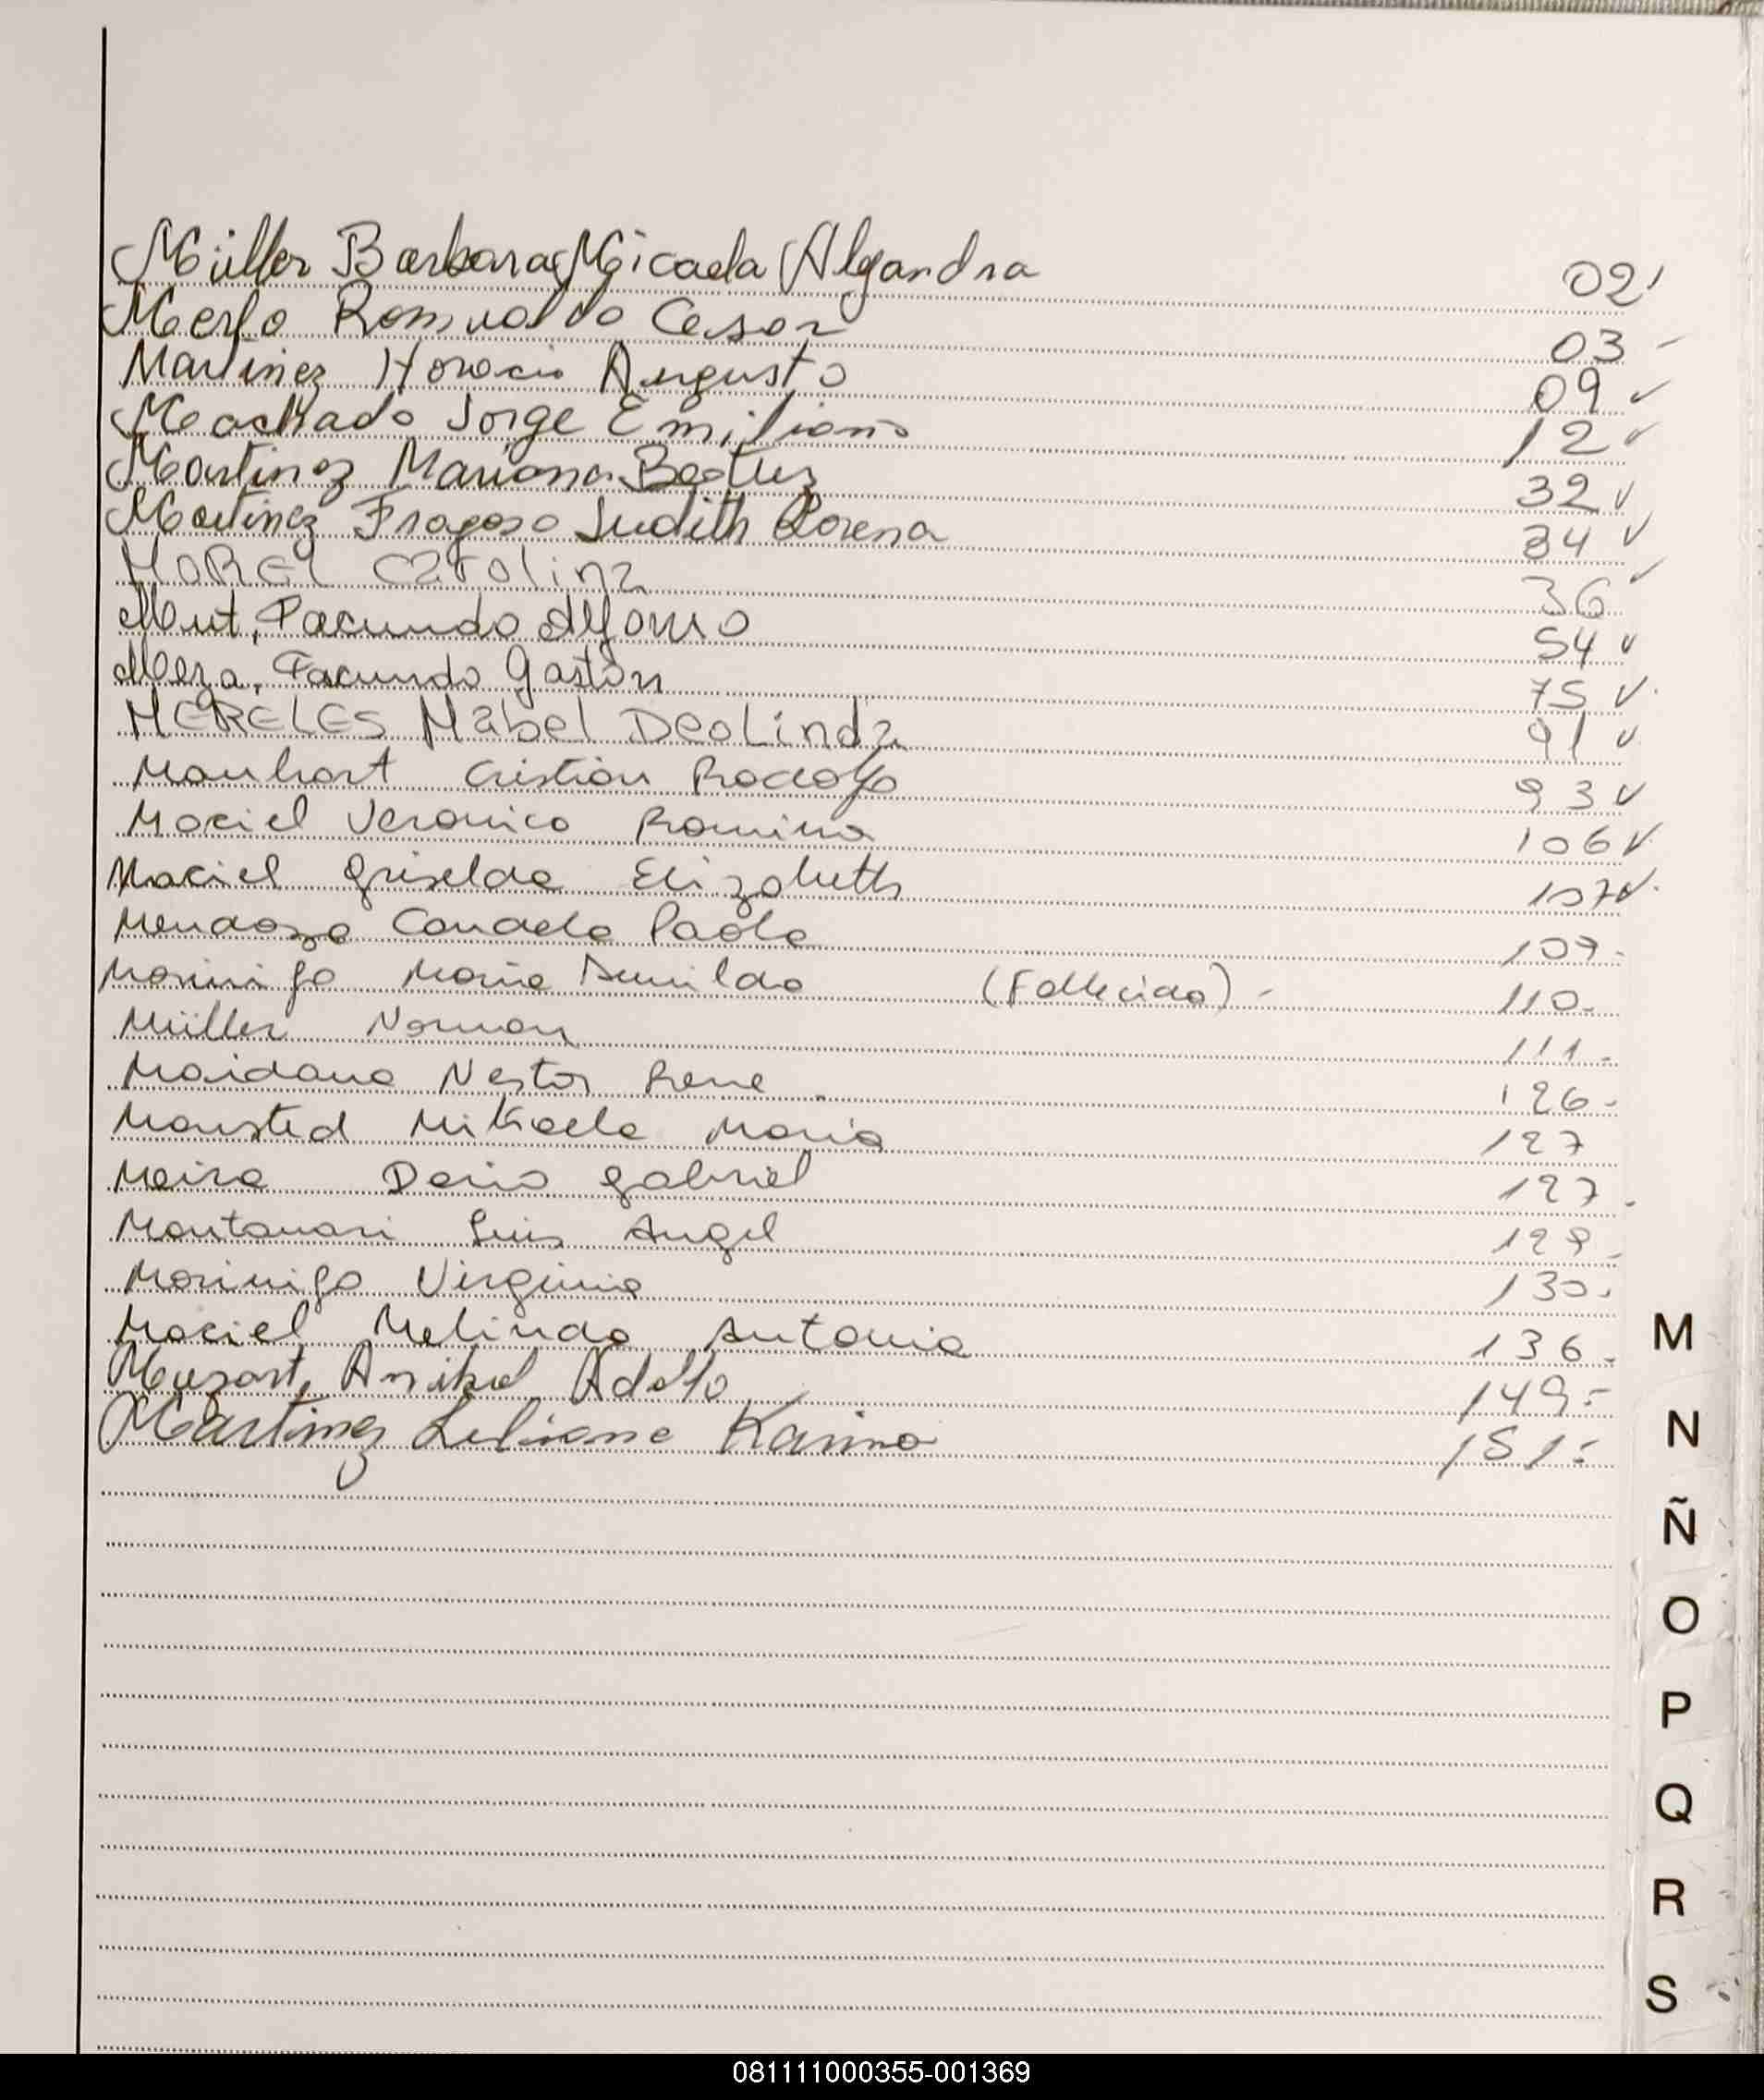 Müller Barbara Micaela Alejandra 02
Merlo Romualdo Cesar 03 -
Martinez Horacio Augusto 09 ✓
Machado Jorge Emiliano 12 ✓
Martinez Mariana Beatriz 32 ✓
Martinez Fragoso Judith Lorena 34 ✓
MOREL Carolina 36 ✓
Mut, Facundo Alfonso 54 ✓
Meza, Facundo Gastón 75 ✓
MERELES Mabel Deolinda 91 ✓
Manhart Cristian Rodolfo 93 ✓
Maciel Veronica Romina 106 ✓
Maciel Griselda Elizabeth 107 ✓
Mendoza Candela Paola 107.
Morinigo Maria (Fallecida) - 110.
Müller Norman 111.
Maidana Nestor Rene 126.
Mansted Mikaela Maria 127
Meira Dario Gabriel 127.
Montanari Luis Angel 129.
Morinigo Virginia 130.
Maciel Melinda Antonia 136.
Muzart, Anibal Adolfo 149.-
Martinez Liliana Karina 151.-
M
N
Ñ
O
P
Q
R
S
081111000355-001369